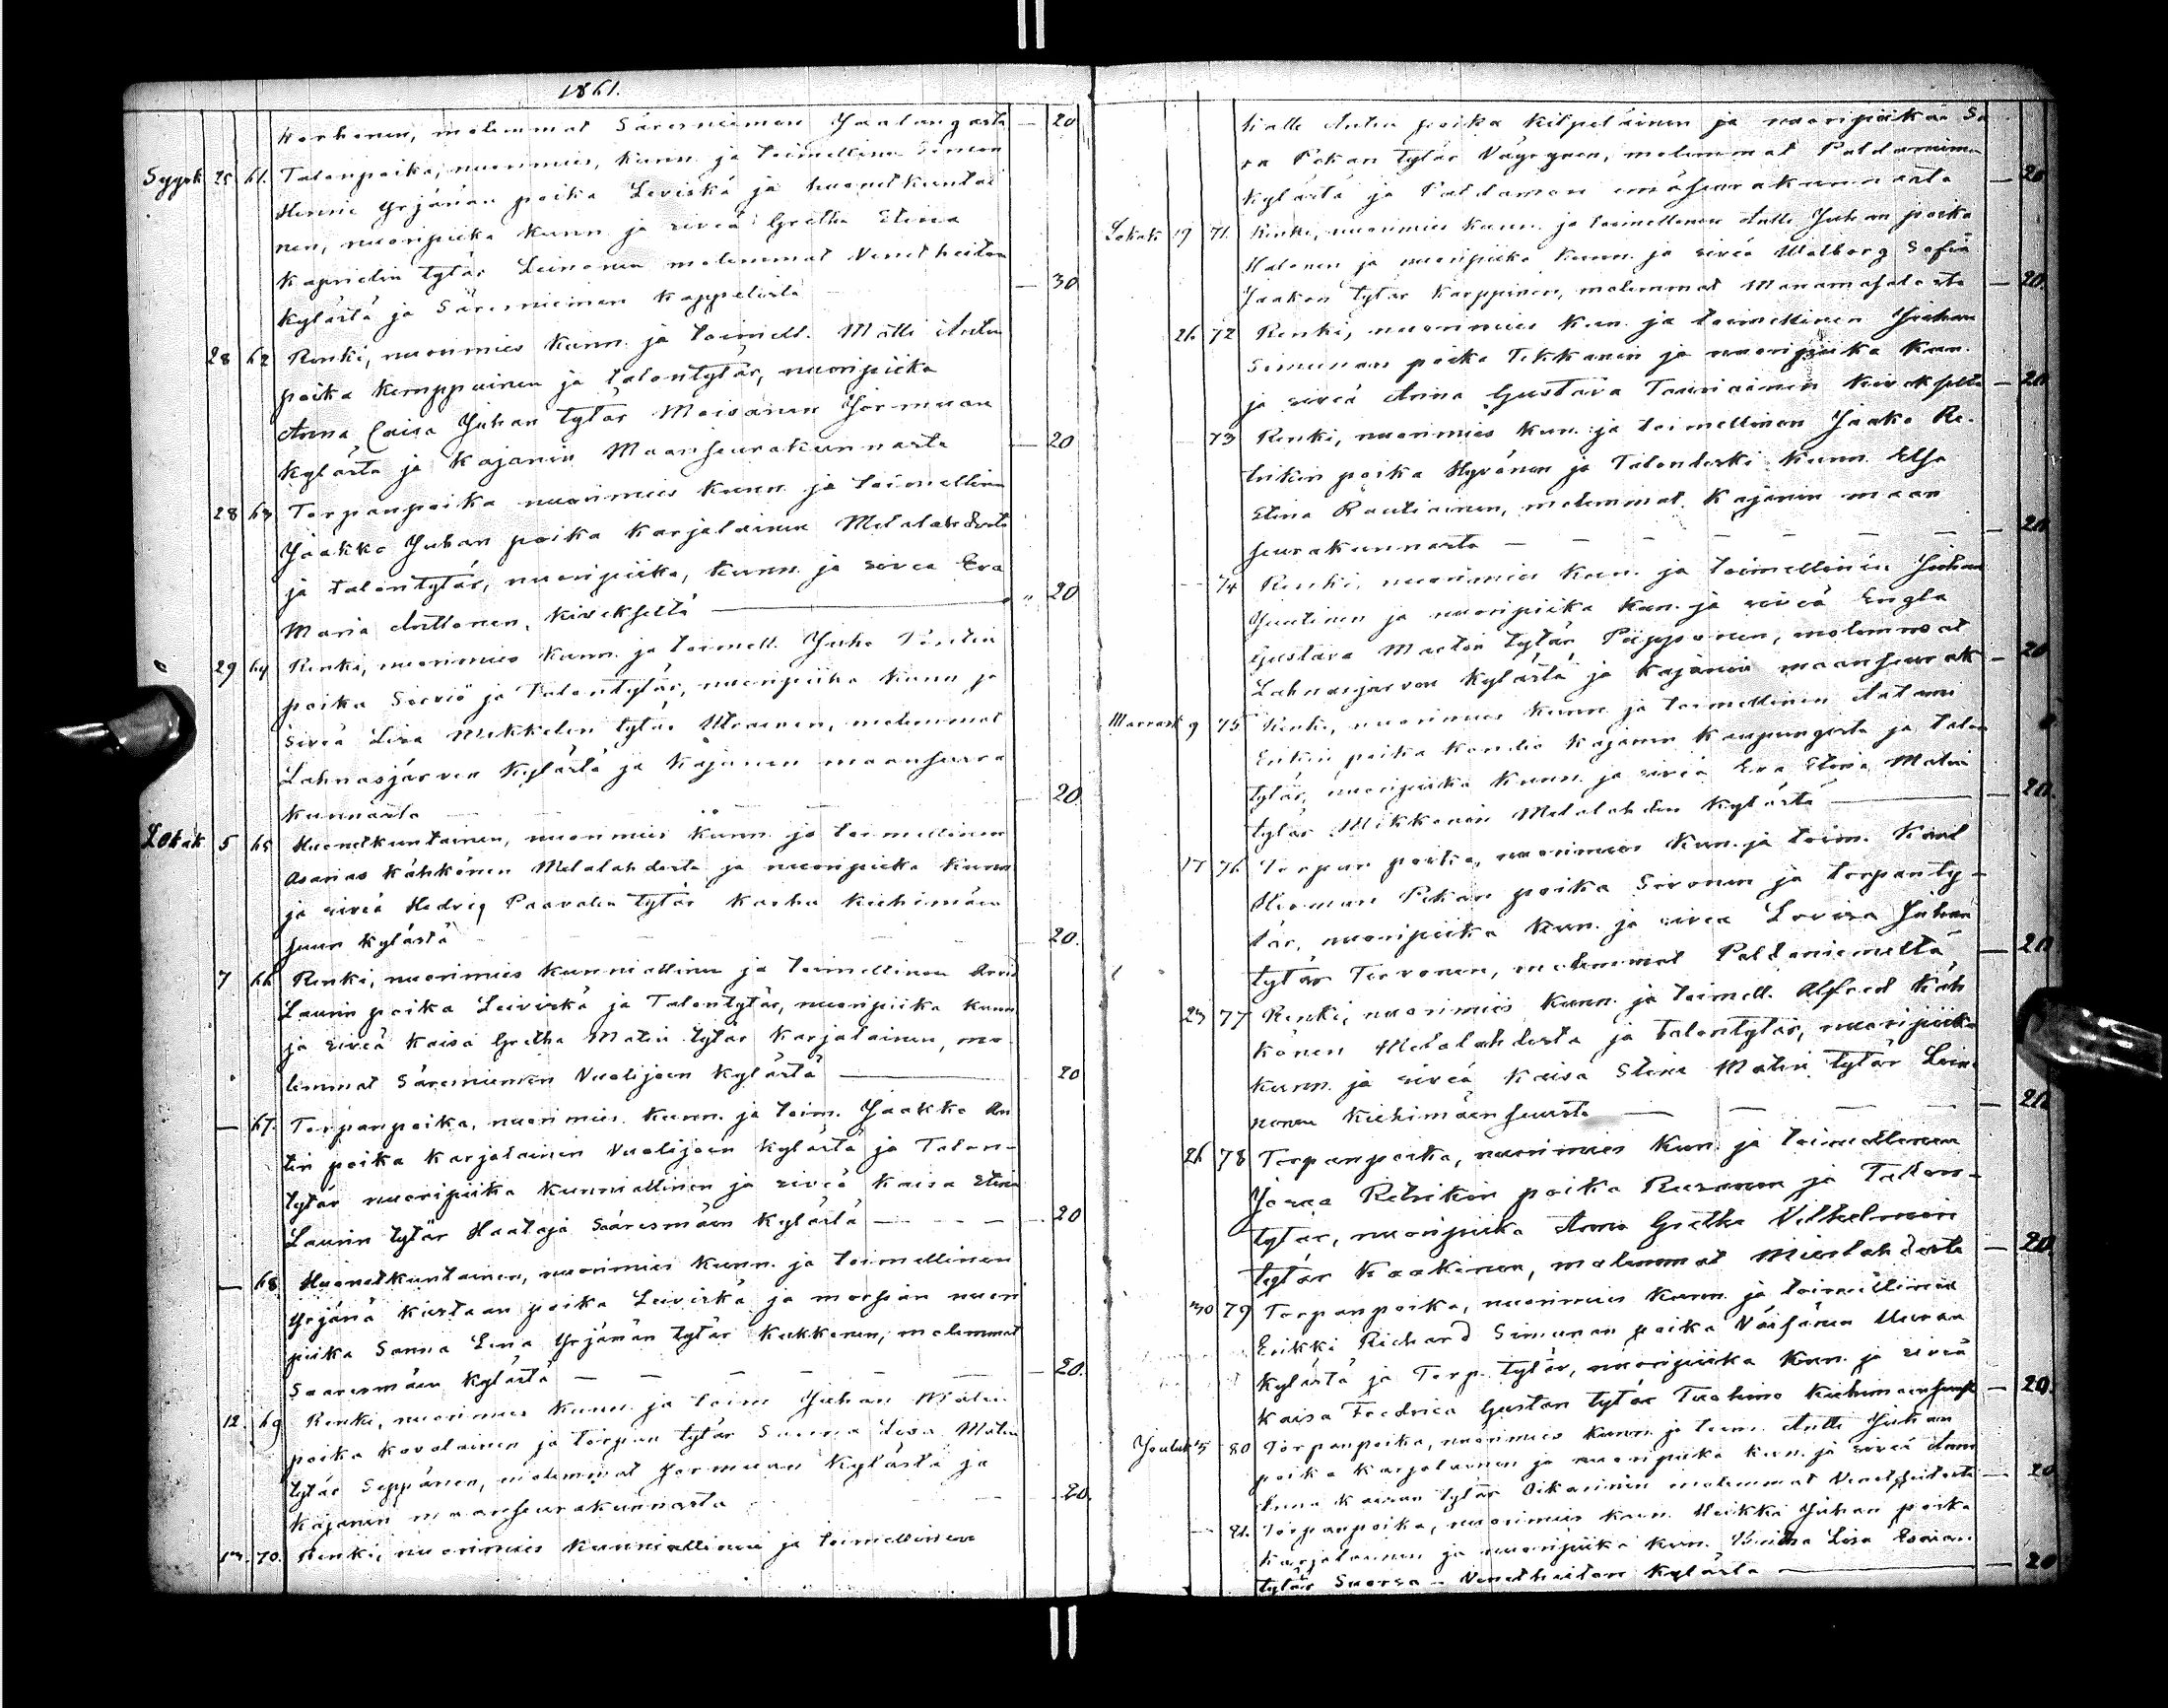 1861.
Korhonen, molemmat Säresniemen Jaalangasta — 20
Syysk 25 61. Talonpoika, nuorimies, kunn. ja toimellinen Simon
Henric Yrjänän poika Leviskä ja huonetkuntai
nen, nuoripiika kunn. ja siviä Gretha Stina
Kaprielin tytär Leinonen molemmat Venetheiton
kylästä ja Säresniemen kappelista — 30
28 62 Renki, nuorimies kunn. ja toimell. Matti Antin
poika Kemppainen ja talontytär, nuoripiika
Anna Caisa Juhan tytär Moisanen Jormuan
kylästä ja Kajanin Maanseurakunnasta — 20
28 63 Torpanpoika nuorimies kunn. ja toimellinen
Jaakko Juhan poika Karjalainen Melalahdesta
ja talontytär, nuoripiika, kunn. ja siviä Eva
Maria Anttonen, Kivekseltä — " 20
29 64 Renki, nuorimies kunn. ja toimell. Juho
poika Sirviö ja Talontytär, nuoripiika kunn ja
siviä Lisa Mikkelin tytär Utriainen, molemmat
Lahnasjärven kylästä ja Kajanin maanseura
kunnasta — 20.
Lokak 5 65 Huonetkuntainen, nuorimies kunn. ja toimellinen
Asarias Kähkönen Melalahdesta ja nuoripiika kunn
ja siviä Hedvig Paavalin tytär Karhu Kiehimän
suun kylästä — 20.
7 66 Renki, nuorimies kunniallinen ja toimellinen Arvid
Laurin poika Leiviskä ja Talontytär, nuoripiika kunn
ja siviä Kaisa Gretha Matin tytär Karjalainen, mo
lemmat Säresniemen Vuolijoen kylästä — 20
— 67. Torpanpoika, nuorimies kunn. ja toim. Jaakko An
tin poika Karjalainen Vuolijoen kylästä ja Talon-
tytär nuoripiika kunniallinen ja siviä Kaisa Stina
Laurin tytär Haataja Säresmäen kylästä — — — 20
— 68 Huonetkuntainen, nuorimies kunn. ja toimellinen
Yrjänä Kustaan poika Leiviskä ja morsian nuori
piika Sanna Lena Yrjänän tytär Kukkonen, molemmat
Saaresmäen kylästä — — — — — — 20.
12. 69 Renki, nuorimies kunn. ja toim Juhan Matin
poika Kovalainen ja torpan tytär Sanna Lisa Matin
tytär Seppänen, molemmat Jormuan kylästä ja
Kajanin maanseurakunnasta — 20.
13. 70. Renki, nuorimies kunniallinen ja toimellinen
Kalle Antin poika Kilpeläinen ja nuoripiika Sa
ra Pekan tytär Väyrynen, molemmat Paldaniemen
kylästä ja Paldamon emäseurakunnasta — 20
Lokak 19 71. Renki, nuorimies kunn. ja toimellinen Antti Juhan poika
Halonen ja nuoripiika kunn. ja siviä Walborg Sofia
Jaakon tytär Karppinen, molemmat Manamasalosta — 20.
26. 72 Renki, nuorimies kun. ja toimellinen Juhan
Simunan poika Tikkanen ja nuoripiika kun.
ja siviä Anna Gustava Tauriainen Kivekseltä — 20
— 73 Renki, nuorimies kun. ja toimellinen Jaako Re-
trikin poika Hyvönen ja Talonleski kunn. Elsa
Stina Rautiainen, molemmat Kajanin maan
seurakunnasta — — — — — — — 20
— 74 Renki, nuorimies kun. ja toimellinen Juhan
Juntinen ja nuoripiika kun. ja siviä Engla
Gustava Martin tytär Pääppönen, molemmat
Lahnasjarven kylästä ja Kajanin maanseurak — 20
Marrask 9 75 Renki, nuorimies kunn. ja toimellinen Aatami
Erikin poika Kondio Kajanin kaupungista ja talon
tytär, nuoripiika kunn. ja siviä Eva Stina Matin
tytär Mikkonen Melalahden kylästä — 20.
17 76 Torpan poika, nuorimies kun. ja toim. Karl
Herman Pekan poika Sivonen ja torpanty-
tär, nuoripiika kun. ja siviä Lovisa Juhan
tytär Tervonen, molemmat Paldaniemeltä — 20
23 77 Renki, nuorimies kunn. ja toimell. Alfred Käh
könen Melalahdesta ja Talontytär, nuoripiika
kunn. ja siviä Kaisa Stina Matin tytär Lein
nonen Kiehimäensuusta — — — — 20
26 78 Torpanpoika, nuorimies kun. ja toimellinen
Josua Retrikin poika Rusanen ja Talon-
tytär, nuoripiika Anna Gretha Vilhelmin
tytär Kaakinen, molemmat Mieslahdesta — 20
30 79 Torpanpoika, nuorimies kunn. ja toimellinen
Erikki Richard Simunan poika Väisänen Uuran
kylästä ja Torp. tytär, nuoripiika kun. ja siviä
Kaisa Fredrica Gustan tytär Tuohino Kiehimäensuust — 20.
Jouluk 5 80 Torpanpoika, nuorimies kunn. ja toim. Antti Juhan
poika Karjalainen ja nuoripiika kun. ja siviä Anna
tytär Oikarinen molemmat Venetheitosta — 20
— 81. Torpanpoika, nuorimies kun. Heikki Juhan poika
Karjalainen ja nuoripiika kun. Lisa Esaian
tytär Suorsa Venetheiton kylästä — 20